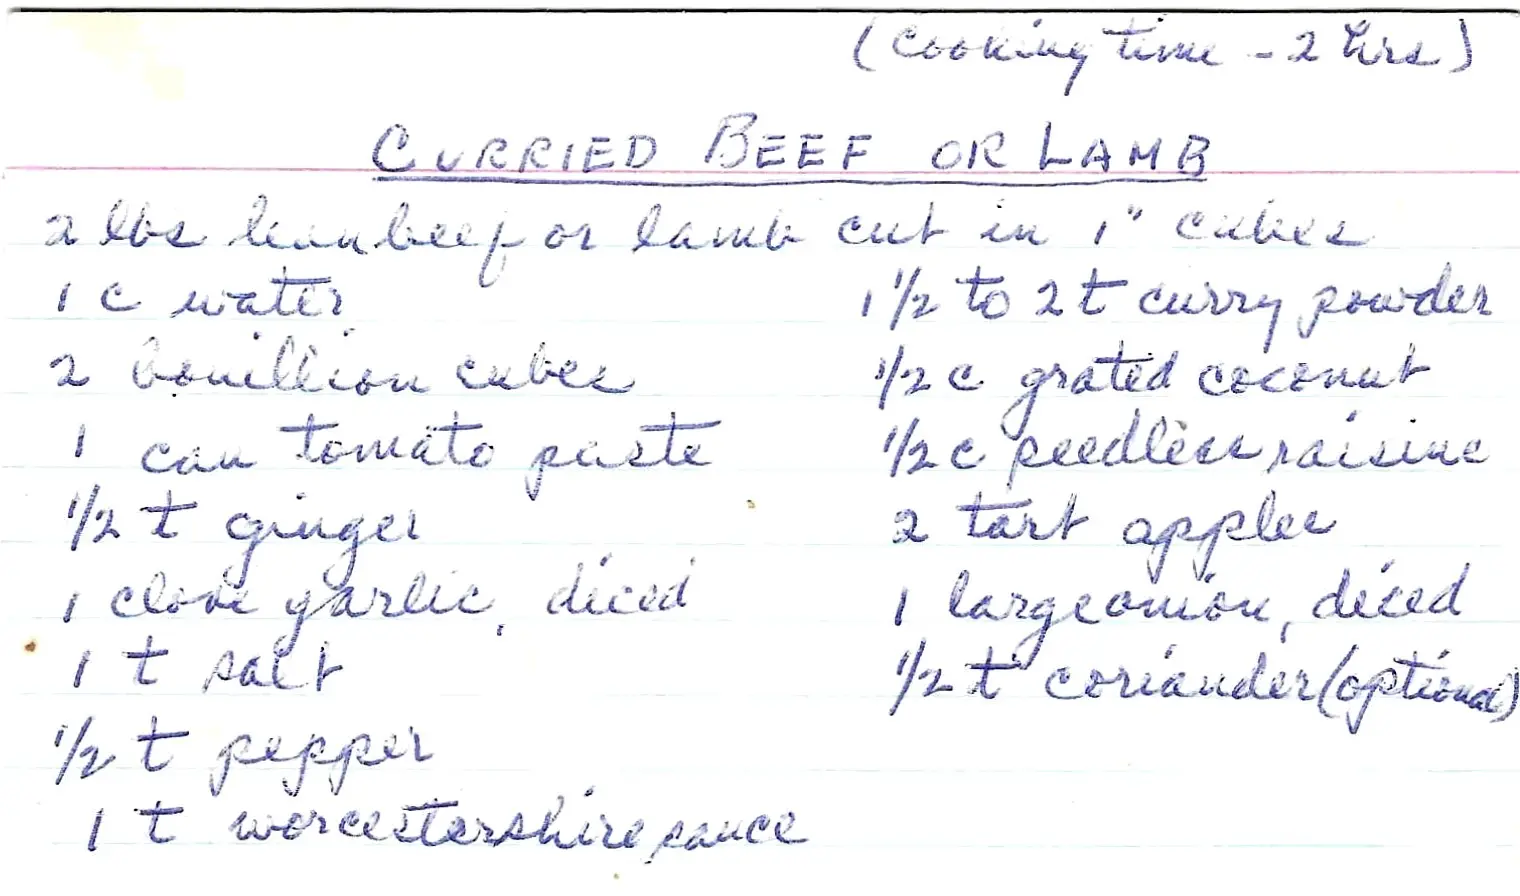 (Cooking time - 2 hrs)
CURRIED BEEF OR LAMB
2 lbs lean beef or lamb cut in 1" cubes
1 c water
2 bouillion cubes
1 can tomato paste
1/2 t ginger
1 clove garlic, diced
1 t salt
1/2 t pepper
1 t worcestershire sauce
1 1/2 to 2 t curry powder
1/2 c grated coconut
1/2 c seedless raisins
2 tart apples
1 large onion, diced
1/2 t coriander (optional)